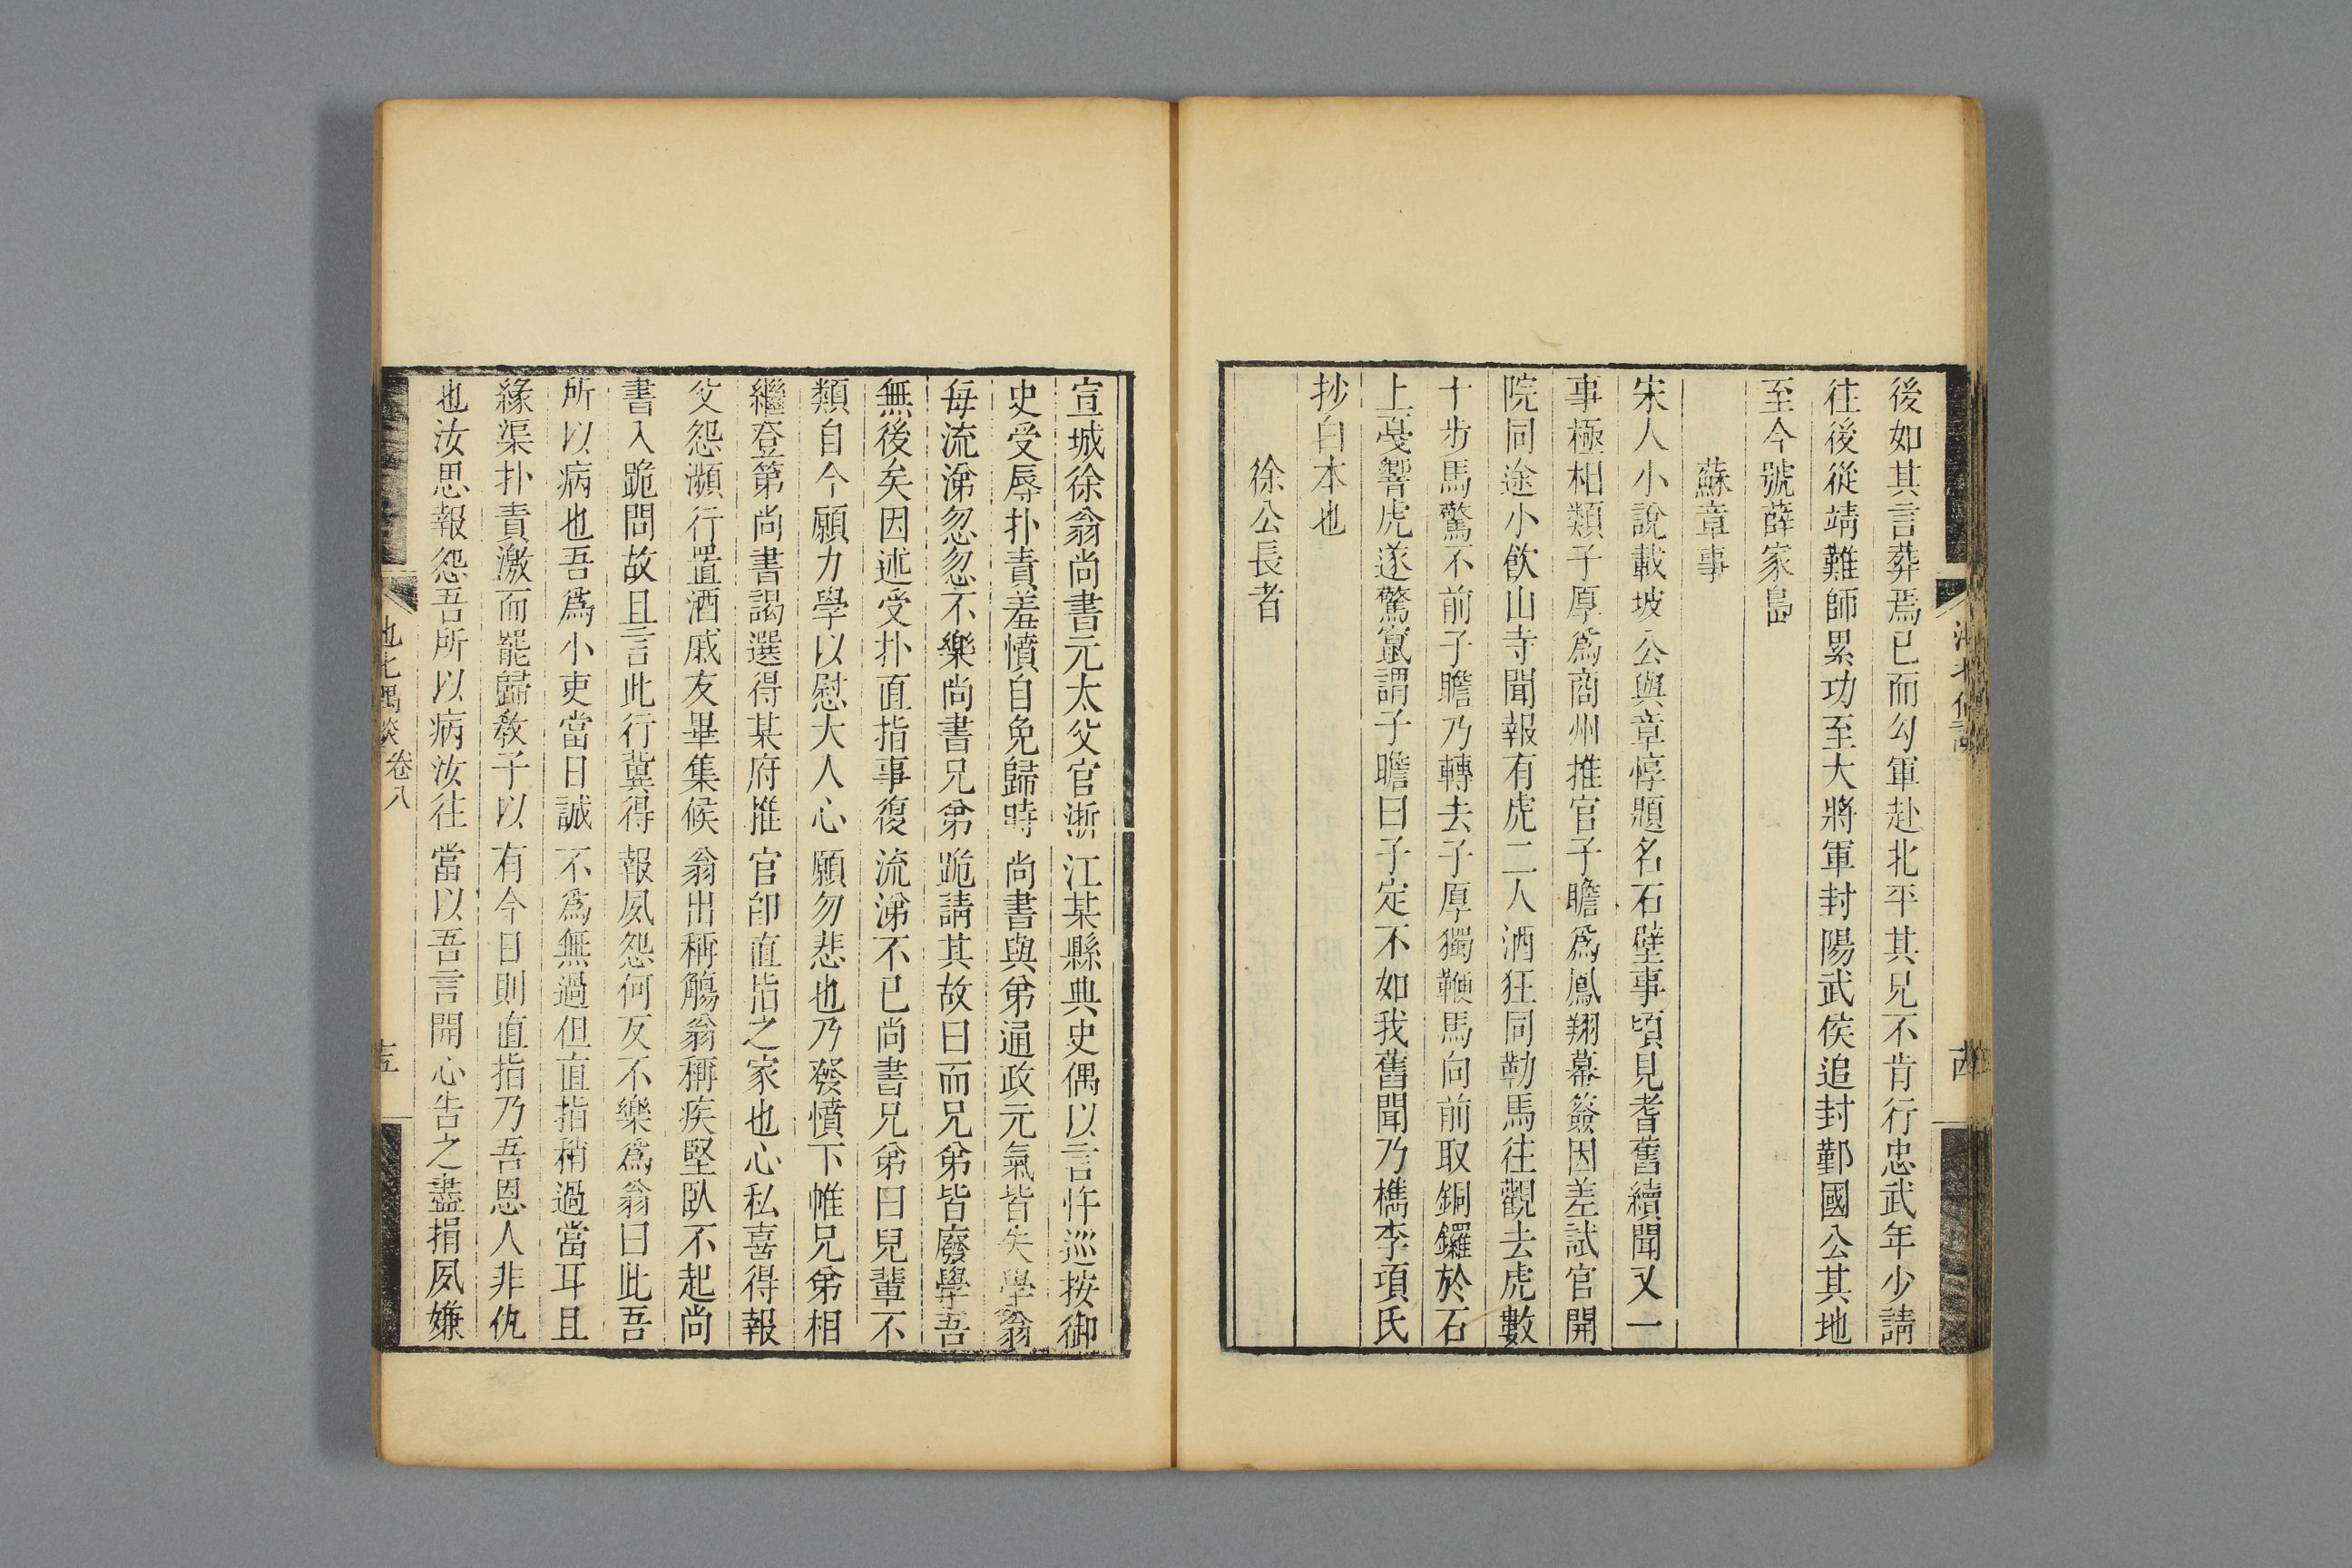 後如其言葬焉已而勾軍赴北平其兄不肯行忠武年少請
往後從靖難師累功至大將軍封陽武侯追封鄞國公其地
至今號薛家島
蘇章事
宋人小說載坡公與章惇題名石壁事頃見耆舊續聞又一
事極相類子厚爲商州推官子瞻爲鳳翔幕簽因差試官開
院同途小飲山寺聞報有虎二人酒狂同勒馬往觀去虎數
十步馬驚不前子瞻乃轉去子厚獨鞭馬向前取銅鑼於石
上戞響虎遂驚竄謂子瞻曰子定不如我舊聞乃檇李項氏
抄白本也
徐公長者
宣城徐翁尚書元太父官浙江某縣典史偶以言忤巡按御
史受辱扑責羞憤自免歸時尚書與弟通政元氣皆失學翁
每流涕忽忽不樂尚書兄弟跪請其故曰而兄弟皆廢學吾
無後矣因述受扑直指事復流涕不已尚書兄弟曰兒輩不
類自今願力學以慰大人心願勿悲也乃發憤下帷兄弟相
繼登第尚書謁選得某府推官卽直指之家也心私喜得報
父怨瀕行置酒戚友畢集候翁出稱觴翁稱疾堅臥不起尚
書入跪問故且言此行冀得報夙怨何反不樂爲翁曰此吾
所以病也吾爲小吏當日誠不爲無過但直指稍過當耳且
緣渠扑責激而罷歸教子以有今日則直指乃吾恩人非仇
也汝思報怨吾所以病汝往當以吾言開心告之盡捐夙嫌
池北偶談 卷八 五